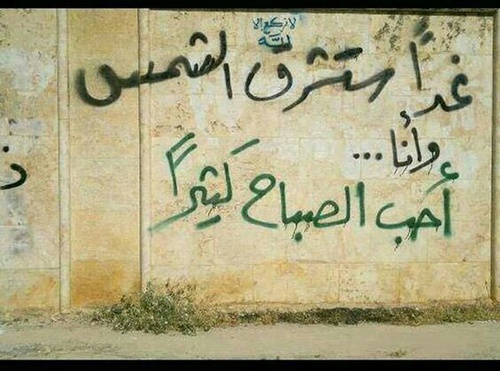 لا نركع إلا
للَّه
غداً ستشرق الشمس
وأنا...
أحب الصباح كثيراً